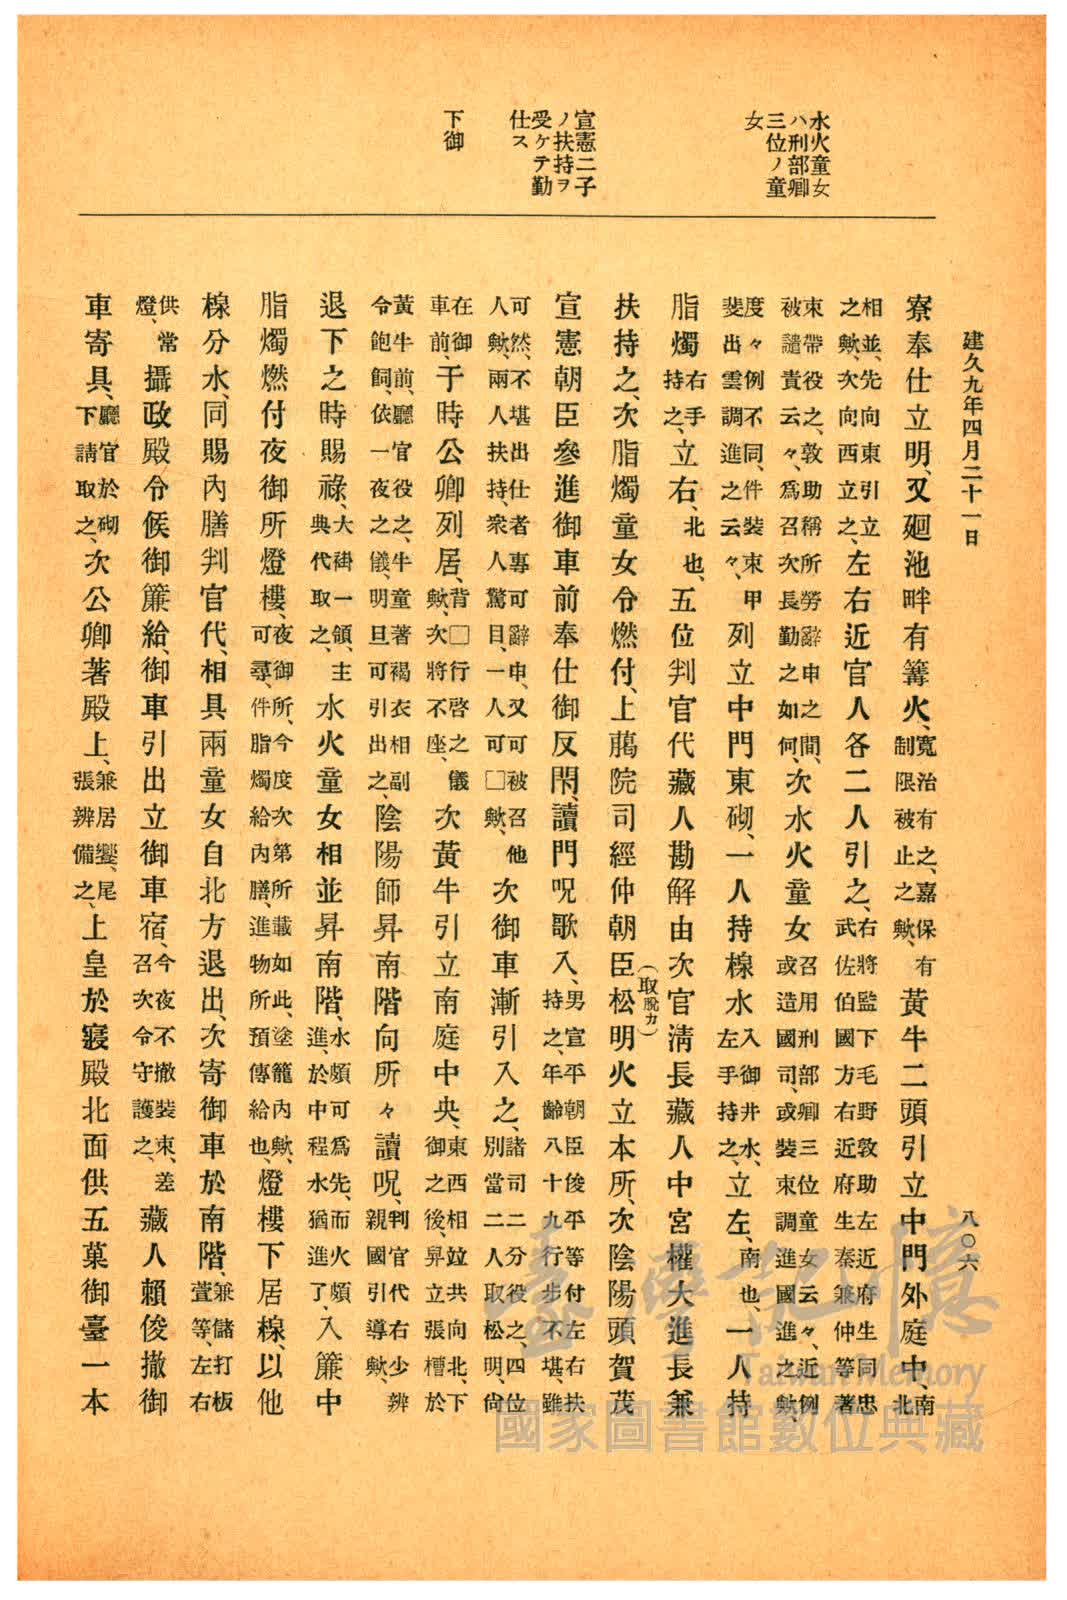 建久九年四月二十一日
八〇六
水火童女
ハ刑部卿
三位ノ童
女
宣憲二子
ノ扶持ヲ
受ケテ勤
仕ス
下御
寮奉仕立明、又廻池畔有篝火、寬治有之、嘉保有制限被止之歟、黃牛二頭引立中門外庭中、南北
相並、先向東引立之歟、次向西立之、左右近官人各二人引之、右將監下毛野敦助左近府生同忠武佐伯國方右近府生秦兼仲等著
束帶役之、敦助稱所勞辭申之間、被譴責云々、爲召次長勤之如何、次水火童女召用刑部卿三位童女云々、近例或造國司、或裝束調進國進之歟、
度々例不同、件裝束甲斐出雲調進之云々、列立中門東砌、一人持樑水入御井水、左手持之、立左、南也、一人持
脂燭右手持之、立右、北也、五位判官代藏人勘解由次官淸長藏人中宮權大進長兼
扶持之、次脂燭童女令燃付、上﨟院司經仲朝臣松明火立本所、次陰陽頭賀茂
（取脫カ）
宣憲朝臣參進御車前奉仕御反閇、讀門呪歌入、男宣平朝臣俊平等付左右扶持之、年齡八十九行步不堪、雖
可然、不堪出仕者專可辭申、又可被召他人歟、兩人扶持、衆人驚目、一人可□歟、次御車漸引入之、諸司二分役之、四位別當二人取松明、尙
在御車前、于時公卿列居、背□行啓之儀歟、次將不座、次黃牛引立南庭中央、東西相竝共向北、下御之後、舁立張槽於
黃牛前、廳官役之、牛童著褐衣相副令飽飼、依一夜之儀、明旦可引出之、陰陽師昇南階向所々讀呪、判官代右少辨親國引導歟、
退下之時賜祿、大褂一領、主典代取之、水火童女相並昇南階、水頗可爲先、而火頗進、於中程水猶進了、入簾中
脂燭燃付夜御所燈樓、夜御所、今度次第所載如此、塗籠內歟、可尋、件脂燭給內膳、進物所預傳給也、燈樓下居樑、以他
樑分水、同賜內膳判官代、相具兩童女自北方退出、次寄御車於南階、兼儲打板萱等、左右
供常燈、攝政殿令候御簾給、御車引出立御車宿、今夜不撤裝束、差召次令守護之、藏人賴俊撤御
車寄具、廳官於砌下請取之、次公卿著殿上、兼居饗、尾張辨備之、上皇於寢殿北面供五菓御臺一本
臺灣記憶
Taiwan Memory
國家圖書館數位典藏